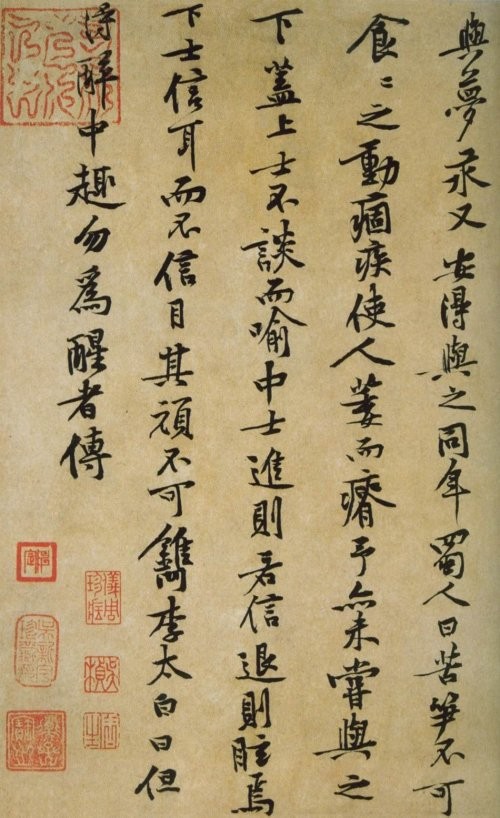 與夢汞又安得與之同年蜀人曰苦笋不可
食〻之動痼疾使人萎而瘠予亦未嘗與之
下蓋上士不談而喻中士進則若信退則眩焉
下士信耳而不信目其頑不可鐫李太白曰但
得醉中趣勿爲醒者傳